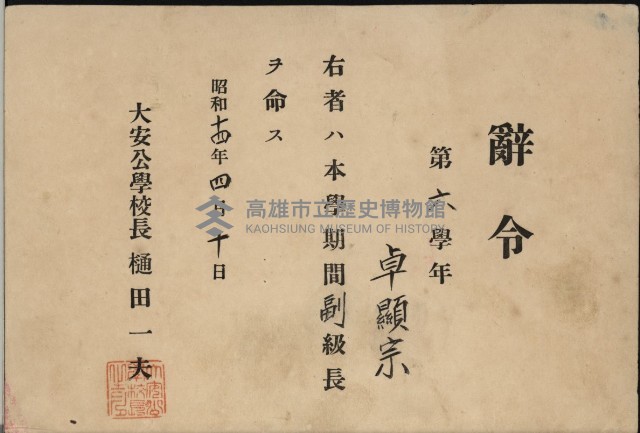 辭令
第六學年
卓顯宗
右者ハ本學期間副級長
ヲ命ス
昭和十四年四月十日
大安公學校長 樋田一夫
高雄市立歷史博物館
KAOHSIUNG MUSEUM OF HISTORY